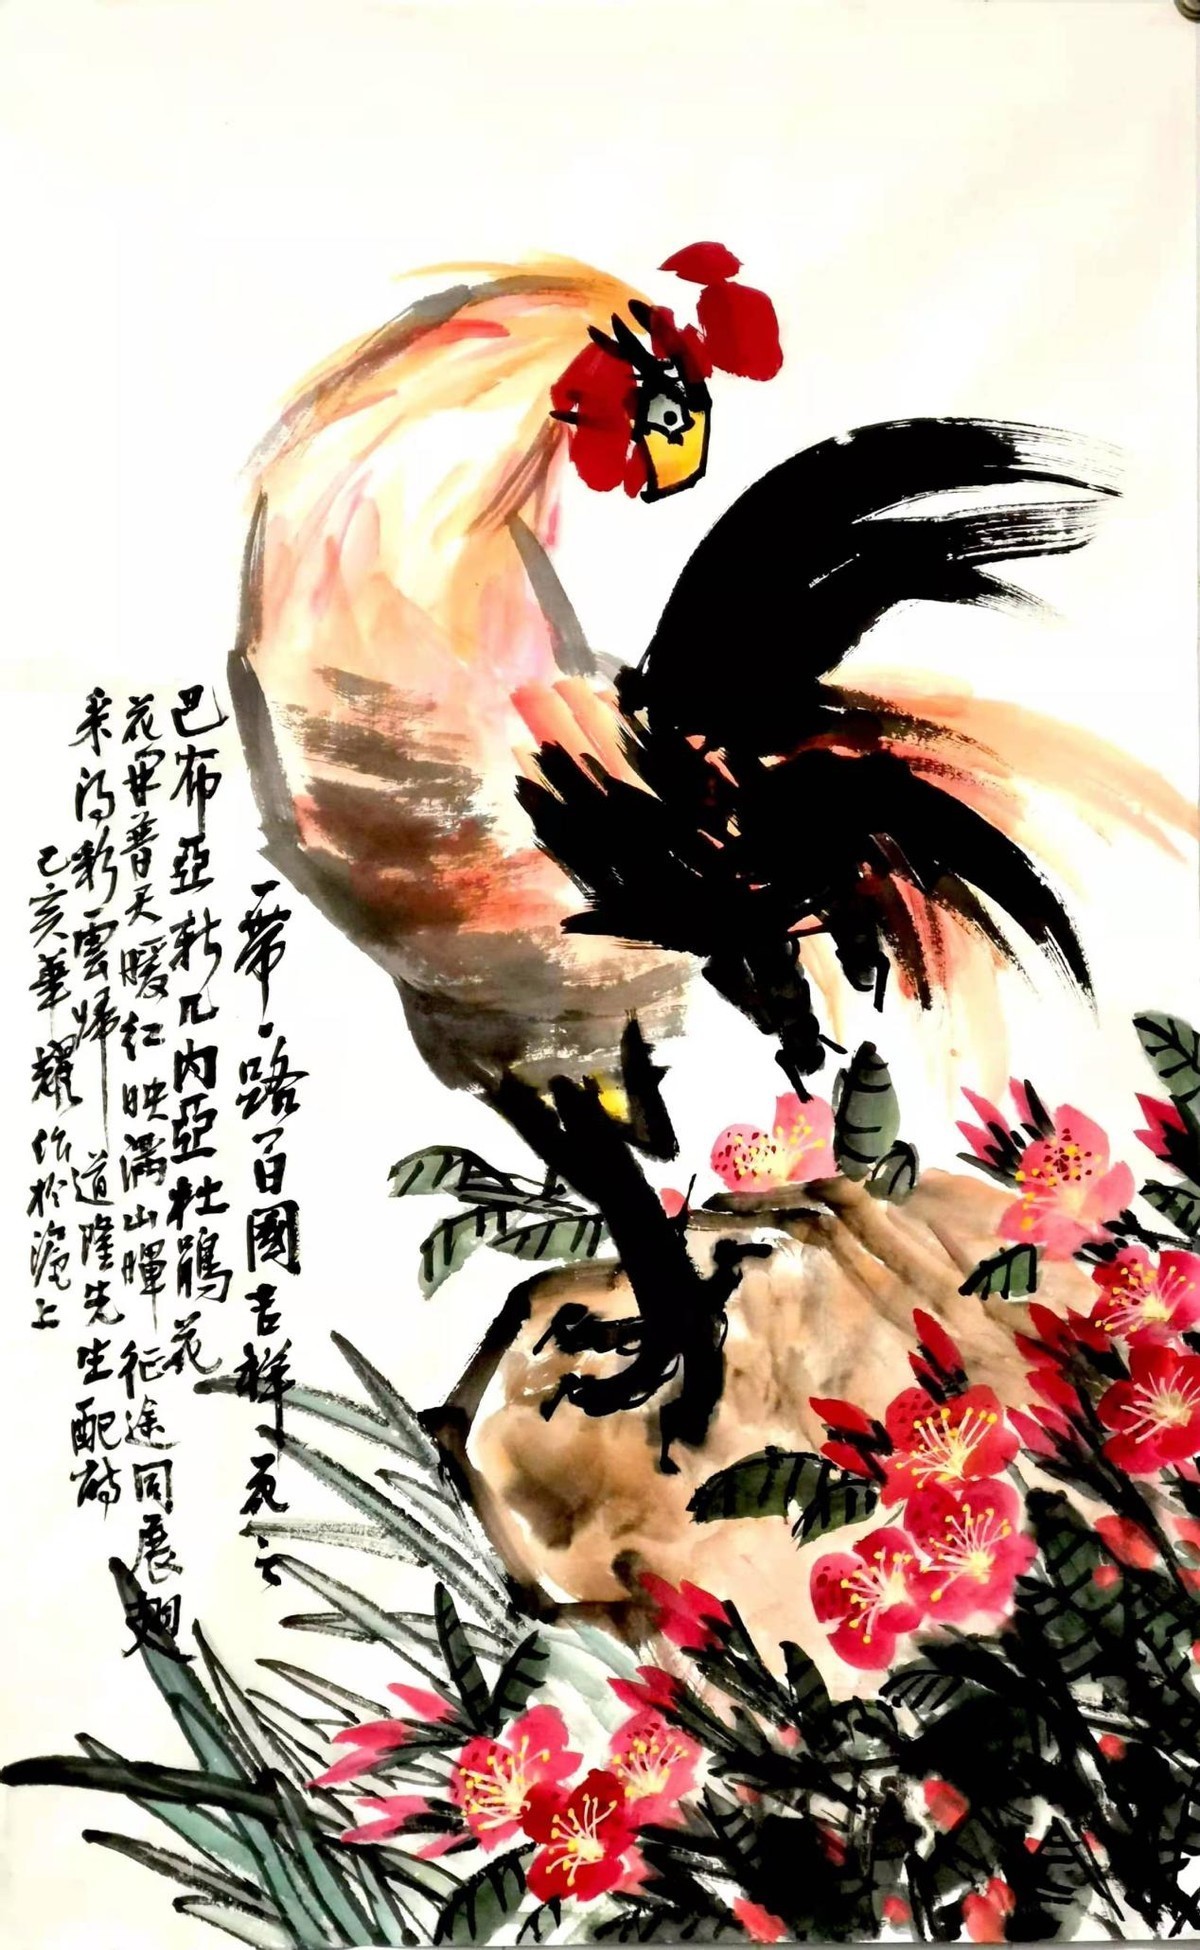 一帶一路百國吉祥花之
巴布亞新几内亞杜鵑花
花開普天暖红映满山暉征途同展翅
采得彩雲歸 道隆先生配詩
己亥華耀作於滬上